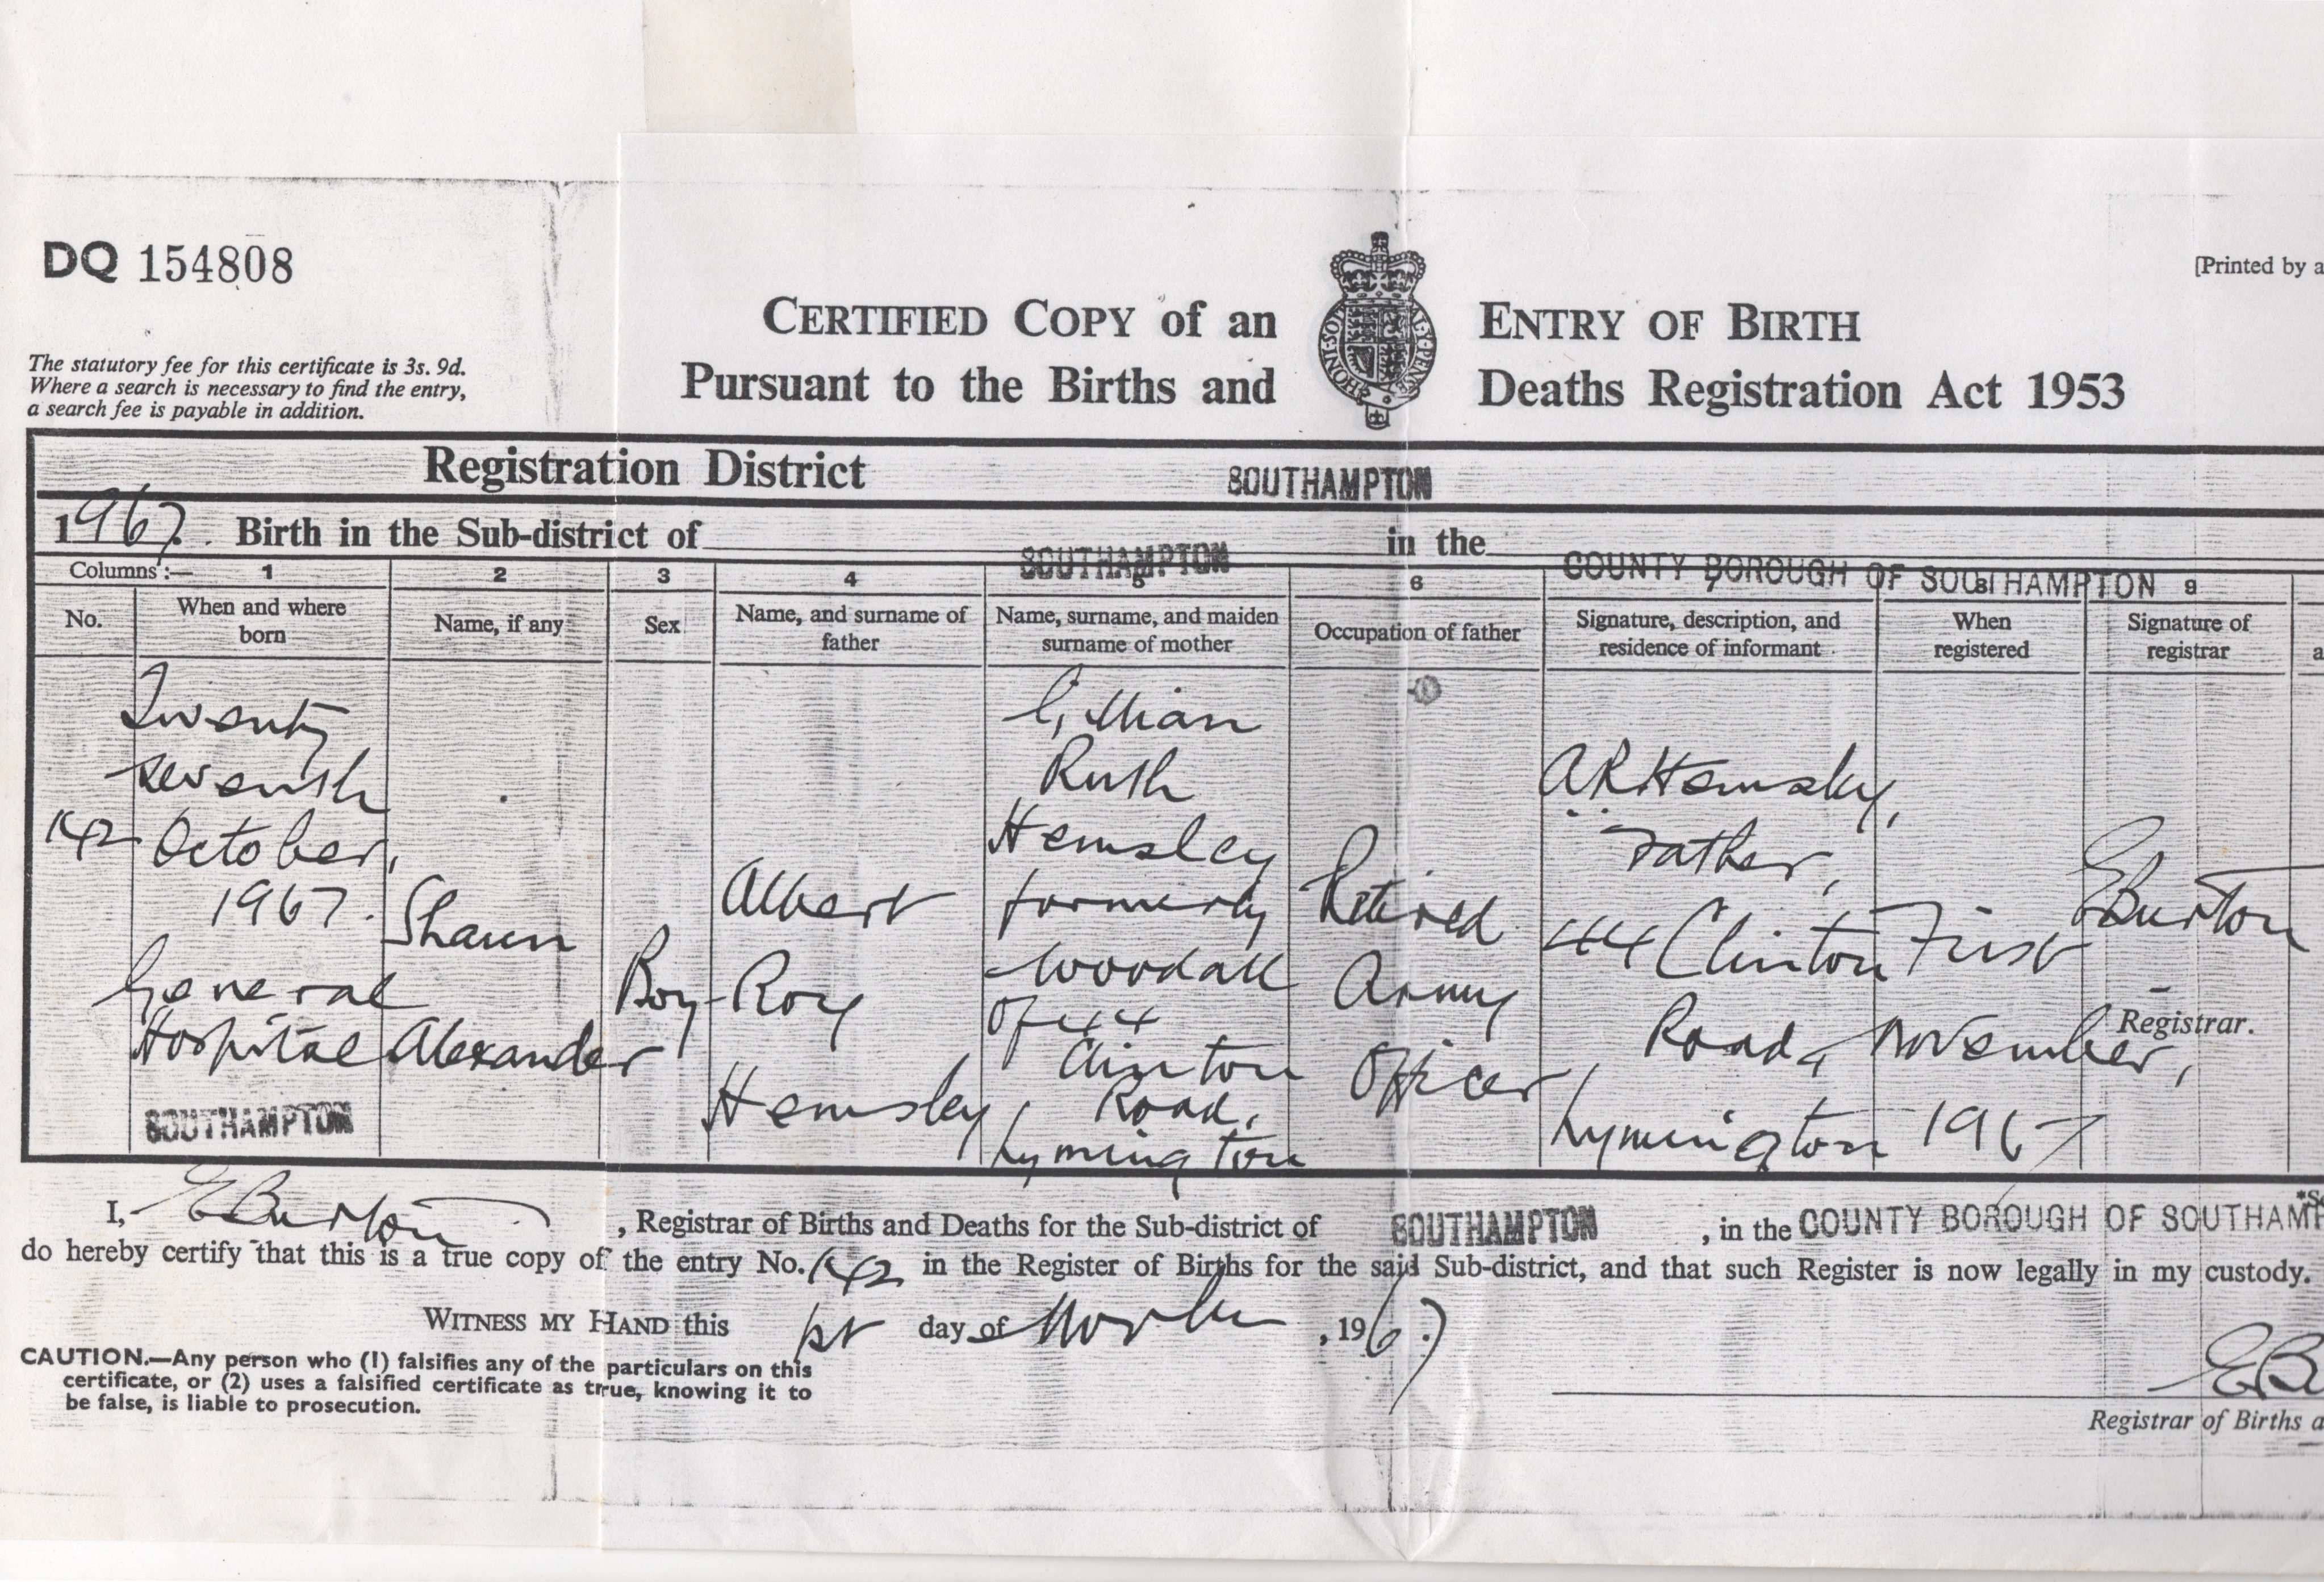 DQ 154808
[Printed by a
CERTIFIED COPY of an ENTRY OF BIRTH
Pursuant to the Births and Deaths Registration Act 1953
The statutory fee for this certificate is 3s. 9d.
Where a search is necessary to find the entry,
a search fee is payable in addition.
Registration District SOUTHAMPTON
1967. Birth in the Sub-district of SOUTHAMPTON in the COUNTY BOROUGH OF SOUTHAMPTON
Columns:— 1 2 3 4 5 6 7 8 9
No.
When and where
born
Name, if any
Sex
Name, and surname of
father
Name, surname, and maiden
surname of mother
Occupation of father
Signature, description, and
residence of informant
When
registered
Signature of
registrar
142
Twenty
seventh
October,
1967.
General
Hospital
SOUTHAMPTON
Shaun
Alexander
Boy
Albert
Roy
Hemsley
Gillian
Ruth
Hemsley
formerly
Woodall
of 44
Clinton
Road,
Lymington
Retired
Army
Officer
A R Hemsley,
Father,
44 Clinton
Road,
Lymington
First
November,
1967
E Burton
Registrar.
I, E Burton, Registrar of Births and Deaths for the Sub-district of SOUTHAMPTON, in the COUNTY BOROUGH OF SOUTHAMP
do hereby certify that this is a true copy of the entry No. 142 in the Register of Births for the said Sub-district, and that such Register is now legally in my custody.
WITNESS MY HAND this 1st day of November, 1967.
CAUTION.—Any person who (1) falsifies any of the particulars on this
certificate, or (2) uses a falsified certificate as true, knowing it to
be false, is liable to prosecution.
E B
Registrar of Births a